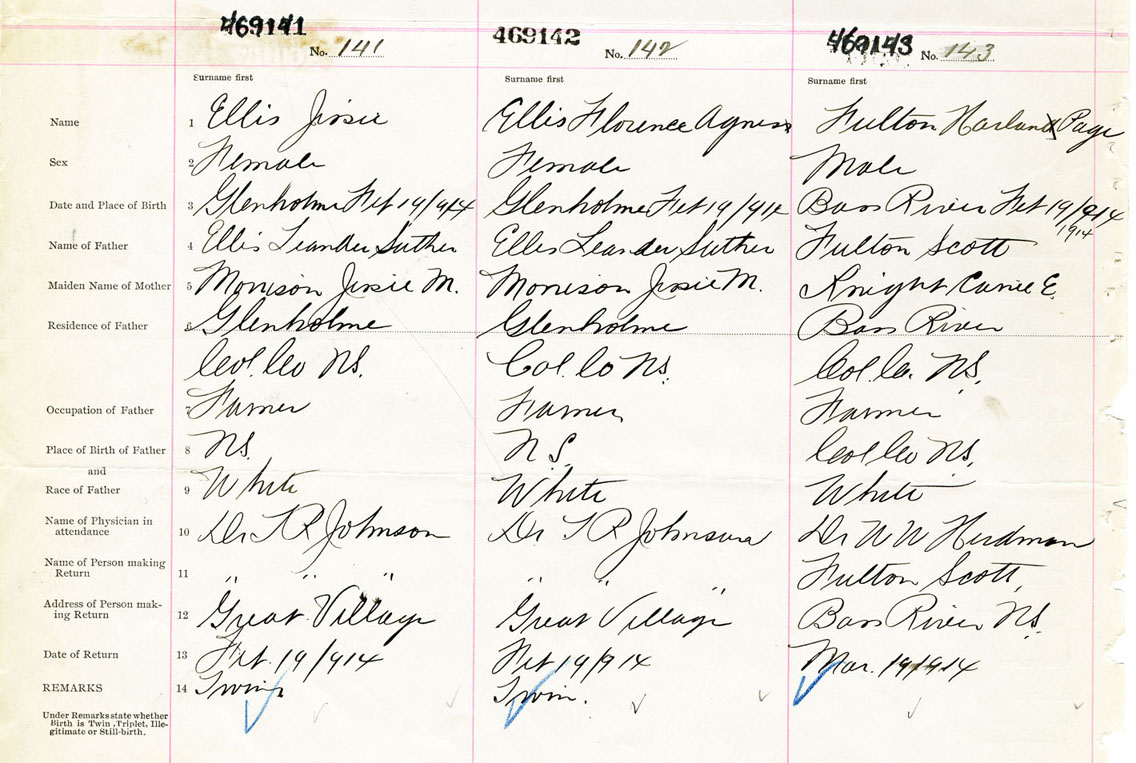 469141 469142 469143
No. 141 No. 142 No. 143
Surname first Surname first Surname first
Name 1 Ellis Jessie Ellis Florence Agness Fulton Harland Page
Sex 2 Female Female Male
Date and Place of Birth 3 Glenholme Feb 19/914 Glenholme Feb 19/914 Bass River Feb 19/914
1914
Name of Father 4 Ellis Leander Suther Ellis Leander Suther Fulton Scott
Maiden Name of Mother 5 Morrison Jessie M. Morrison Jessie M. Knight Carrie E.
Residence of Father 6 Glenholme Glenholme Bass River
Col. Co NS. Col. Co NS. Col. Co. NS.
Occupation of Father 7 Farmer Farmer Farmer
Place of Birth of Father 8 NS. NS. Col Co NS.
and
Race of Father 9 White White White
Name of Physician in
attendance 10 Dr T R Johnson Dr T R Johnson Dr W W Herdman
Name of Person making
Return 11 " " " " " " Fulton Scott,
Address of Person mak-
ing Return 12 Great Village Great Village Bass River NS.
Date of Return 13 Feb. 19/914 Feb 19/914 Mar. 19 1914
REMARKS 14 Twins Twin.
Under Remarks state whether
Birth is Twin, Triplet, Ille-
gitimate or Still-birth.